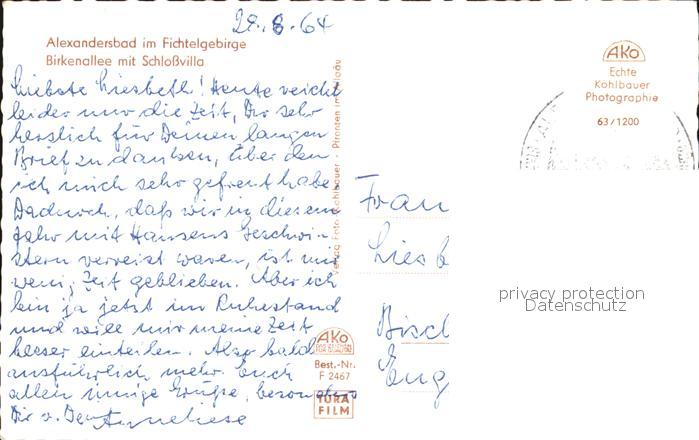 29.8.64
Alexandersbad im Fichtelgebirge
Birkenallee mit Schloßvilla
Liebste Liesbeth! Heute reicht
leider nur die Zeit, Dir sehr
herzlich für Deinen langen
Brief zu danken, über den
ich mich sehr gefreut habe.
Dadurch, daß wir in diesem
Jahr mit Hansens Geschwi-
stern verreist waren, ist mir
wenig Zeit geblieben. Aber ich
bin ja jetzt im Ruhestand
und will mir meine Zeit
besser einteilen. Also bald
ausführlich mehr. Euch
allen innige Grüße, besonders
Dir v. Deiner Anneliese
Verlag Foto Kohlbauer - Pfronten im Allgäu
AKO
Echte
Kohlbauer
Photographie
63/1200
Frau
Liesb
Bisch
Eug
privacy protection
Datenschutz
AKO
Best.-Nr.
F 2467
TURA
FILM